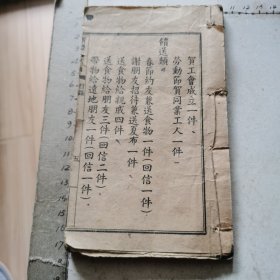 賀工會成立一件、
勞動節賀同業工人一件、
餽送類
春節約友兼送食物一件(回信一件)
謝朋友招待兼送夏布一件、
送食物給親戚四件、
送食物給朋友三件(回信二件)
帶物給遠地朋友一件(回信一件)
五